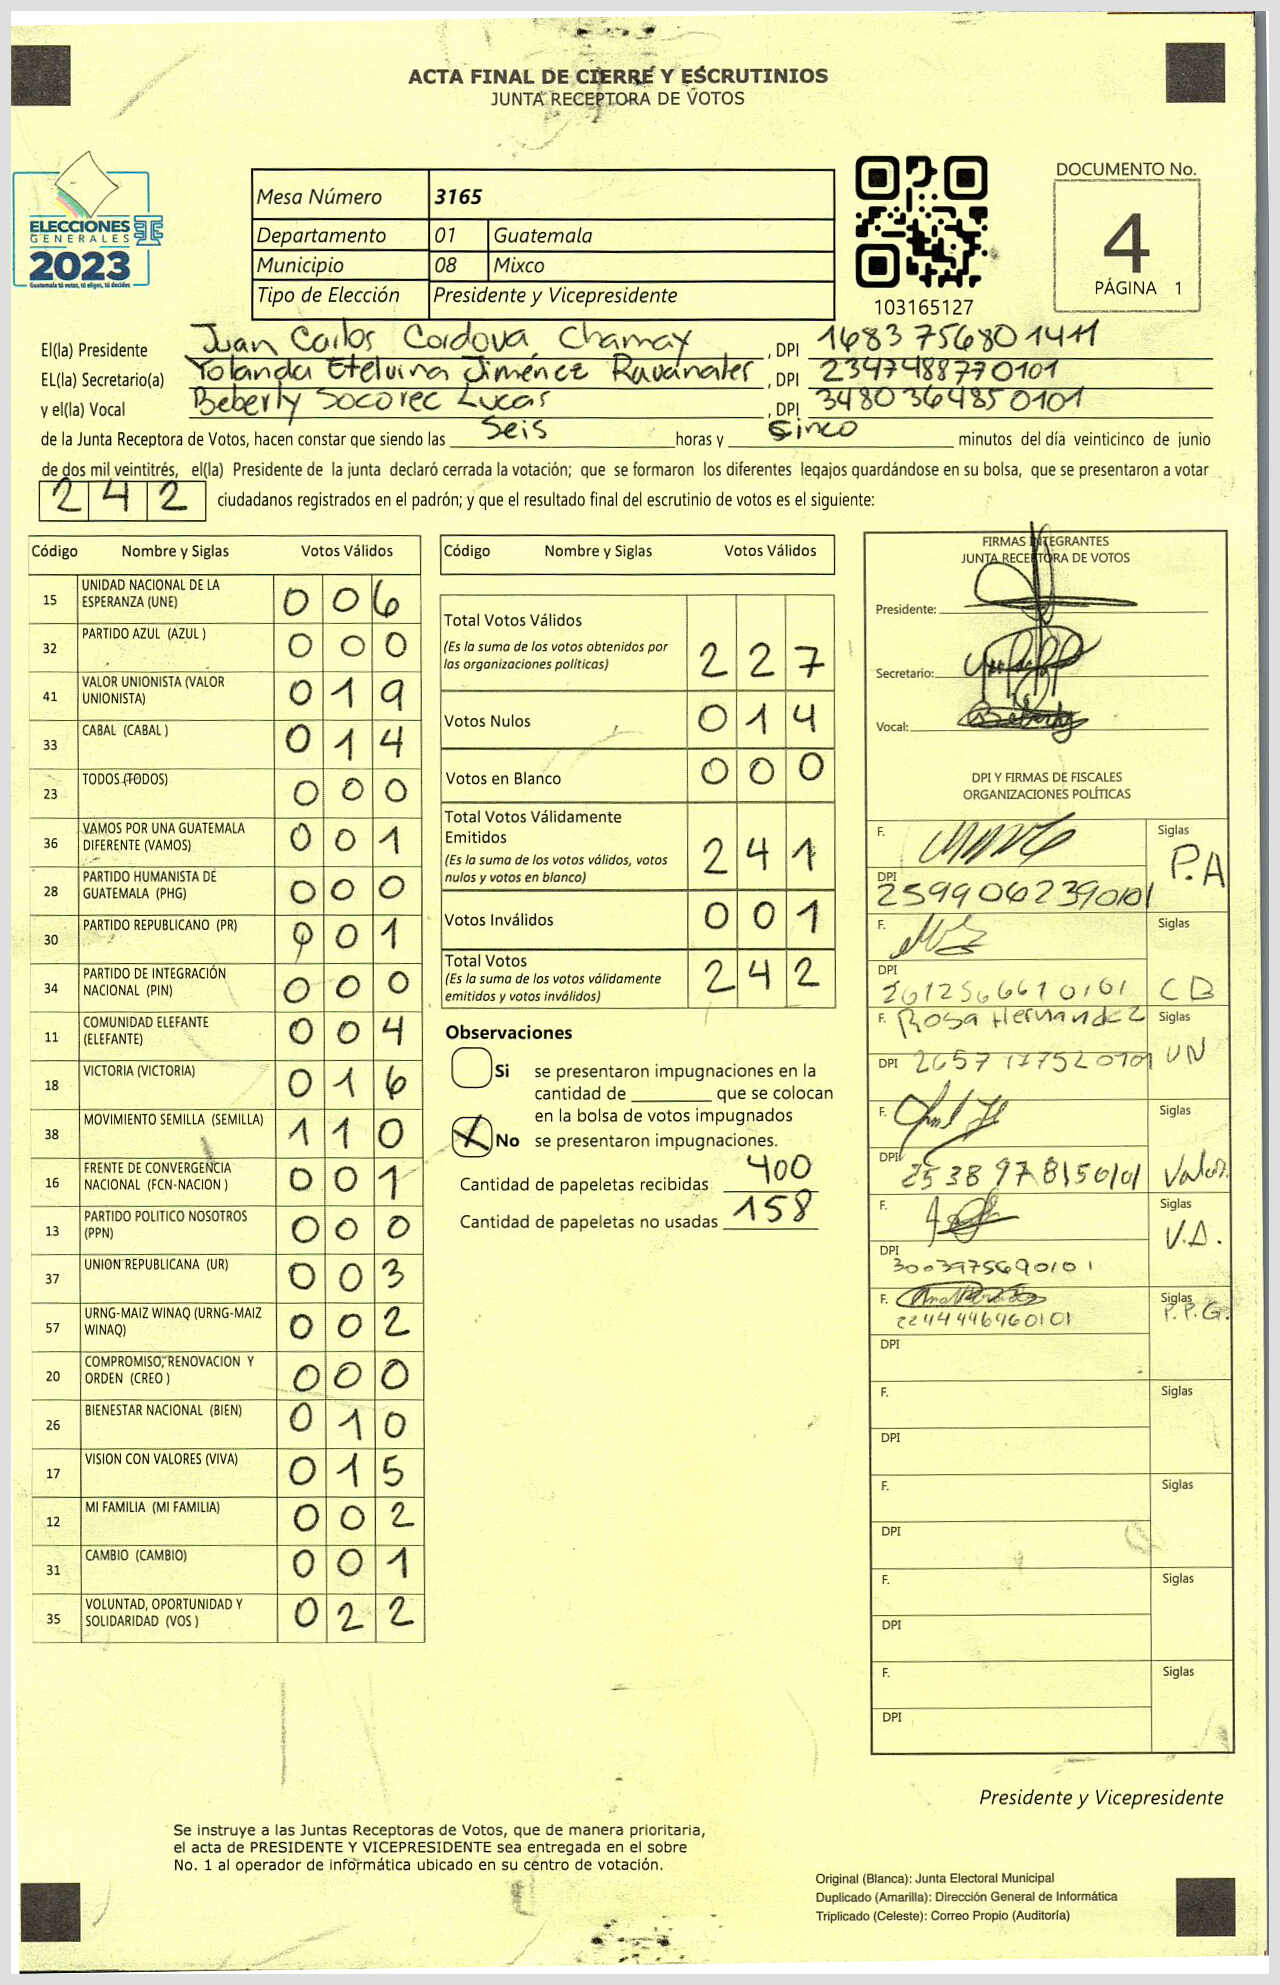 ACTA FINAL DE CIERRE Y ESCRUTINIOS
JUNTA RECEPTORA DE VOTOS
ELECCIONES
GENERALES
2023
Guatemala tú votas, tú eliges, tú decides
Mesa Número 3165
Departamento 01 Guatemala
Municipio 08 Mixco
Tipo de Elección Presidente y Vicepresidente
103165127
DOCUMENTO No.
4
PÁGINA 1
El(la) Presidente Juan Carlos Cordova Chamay, DPI 1683756801411
EL(la) Secretario(a) Yolanda Etelvina Jiménez, DPI 2347488770101
y el(la) Vocal Beberly Socorec Lucas, DPI 3480364850101
de la Junta Receptora de Votos, hacen constar que siendo las Seis horas y cinco minutos del día veinticinco de junio
de dos mil veintitrés, el(la) Presidente de la junta declaró cerrada la votación; que se formaron los diferentes legajos quardándose en su bolsa, que se presentaron a votar
242 ciudadanos registrados en el padrón; y que el resultado final del escrutinio de votos es el siguiente:
Código Nombre y Siglas Votos Válidos
15 UNIDAD NACIONAL DE LA ESPERANZA (UNE) 006
32 PARTIDO AZUL (AZUL ) 000
41 VALOR UNIONISTA (VALOR UNIONISTA) 019
33 CABAL (CABAL ) 014
23 TODOS (TODOS) 000
36 VAMOS POR UNA GUATEMALA DIFERENTE (VAMOS) 001
28 PARTIDO HUMANISTA DE GUATEMALA (PHG) 000
30 PARTIDO REPUBLICANO (PR) 001
34 PARTIDO DE INTEGRACIÓN NACIONAL (PIN) 000
11 COMUNIDAD ELEFANTE (ELEFANTE) 004
18 VICTORIA (VICTORIA) 016
38 MOVIMIENTO SEMILLA (SEMILLA) 110
16 FRENTE DE CONVERGENCIA NACIONAL (FCN-NACION ) 001
13 PARTIDO POLITICO NOSOTROS (PPN) 000
37 UNION REPUBLICANA (UR) 003
57 URNG-MAIZ WINAQ (URNG-MAIZ WINAQ) 002
20 COMPROMISO, RENOVACION Y ORDEN (CREO ) 000
26 BIENESTAR NACIONAL (BIEN) 010
17 VISION CON VALORES (VIVA) 015
12 MI FAMILIA (MI FAMILIA) 002
31 CAMBIO (CAMBIO) 001
35 VOLUNTAD, OPORTUNIDAD Y SOLIDARIDAD (VOS ) 022
Código Nombre y Siglas Votos Válidos
Total Votos Válidos
(Es la suma de los votos obtenidos por las organizaciones politicas) 227
Votos Nulos 014
Votos en Blanco 000
Total Votos Válidamente Emitidos
(Es la suma de los votos válidos, votos nulos y votos en blanco) 241
Votos Inválidos 001
Total Votos
(Es la suma de los votos válidamente emitidos y votos inválidos) 242
Observaciones
Si se presentaron impugnaciones en la
cantidad de ________ que se colocan
en la bolsa de votos impugnados
X No se presentaron impugnaciones.
Cantidad de papeletas recibidas 400
Cantidad de papeletas no usadas 158
FIRMAS INTEGRANTES
JUNTA RECEPTORA DE VOTOS
Presidente:
Secretario:
Vocal: Beberly
DPI Y FIRMAS DE FISCALES
ORGANIZACIONES POLÍTICAS
F. Siglas P.A
DPI 2599062390101
F. Siglas CB
DPI 2612566610101
F. Rosa Hernandez Siglas UN
DPI 2657177520101
F. Siglas Valor
DPI 2538978150101
F. Siglas V.A.
DPI 3003975690101
F. Siglas P.P.G.
2244446960101
DPI
F. Siglas
DPI
F. Siglas
DPI
F. Siglas
DPI
F. Siglas
DPI
Presidente y Vicepresidente
Se instruye a las Juntas Receptoras de Votos, que de manera prioritaria,
el acta de PRESIDENTE Y VICEPRESIDENTE sea entregada en el sobre
No. 1 al operador de informática ubicado en su centro de votación.
Original (Blanca): Junta Electoral Municipal
Duplicado (Amarilla): Dirección General de Informática
Triplicado (Celeste): Correo Propio (Auditoría)